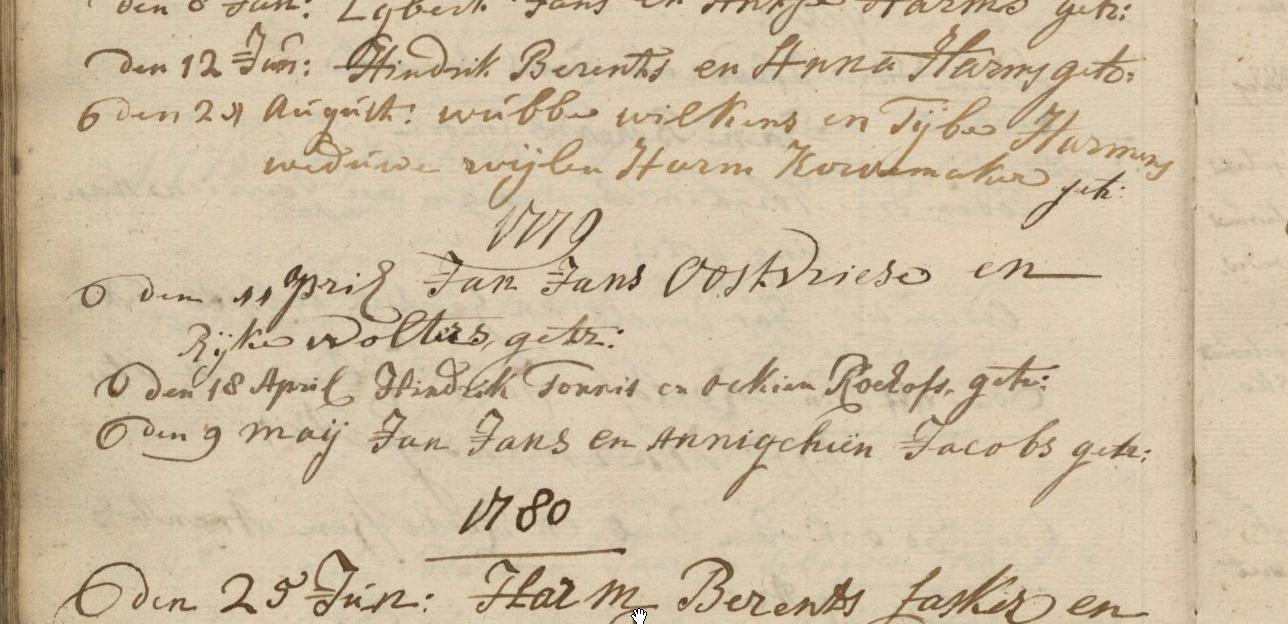 den 8 Jan: Egbert Jans en Antje Harms getr:
den 12 Jun: Hindrik Berents en Anna Harms getr:
den 23 August: wubbe wilkens en Tijbe Harmens
weduwe wijlen Harm Kowemaker getr:
1779
den 11 April Jan Jans Oostvriese en
Rijke Wolters, getr:
den 18 April Hindrik Tonnis en Ockien Roelofs, getr:
den 9 maij Jan Jans en Annigchien Jacobs getr:
1780
den 25 Jun: Harm Berents en